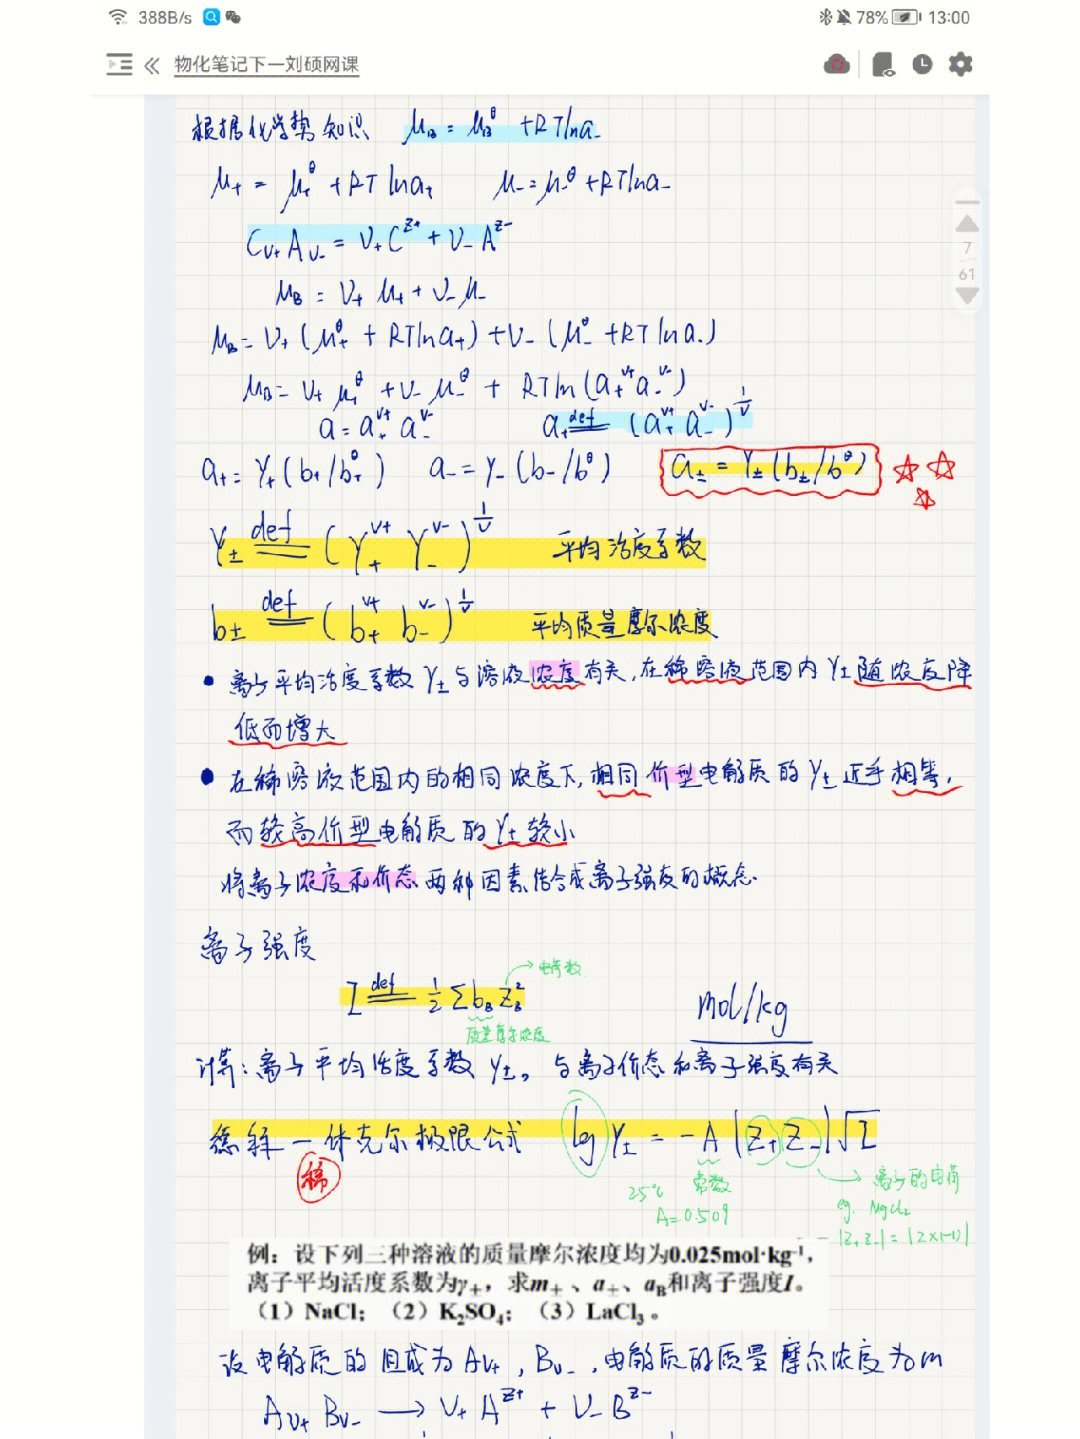 388B/s 78% 13:00
物化笔记下一刘硕网课
根据化学势知识 μB = μB^θ + RTlna
μ+ = μ+^θ + RT lna+ μ- = μ-^θ + RTlna-
Cν+ Aν- = ν+C^z+ + ν-A^z-
μB = ν+ μ+ + ν- μ-
μB = ν+ (μ+^θ + RTlna+) + ν- (μ-^θ + RT lna-)
μB = ν+ μ+^θ + ν- μ-^θ + RTln(a+^ν+ a-^ν-)
a = a+^ν+ a-^ν- a± def (a+^ν+ a-^ν-)^1/ν
a+ = γ+(b+/b^θ) a- = γ-(b-/b^θ) a± = γ±(b±/b^θ)
γ± def (γ+^ν+ γ-^ν-)^1/ν 平均活度系数
b± def (b+^ν+ b-^ν-)^1/ν 平均质量摩尔浓度
• 离子平均活度系数 γ± 与溶液浓度有关,在稀溶液范围内 γ± 随浓度降
低而增大
• 在稀溶液范围内的相同浓度下,相同价型电解质的 γ± 近乎相等,
而较高价型电解质的 γ± 较小
将离子浓度和价态两种因素结合成离子强度的概念.
离子强度
电荷数
I def 1/2 Σ bB zB^2 mol/kg
质量摩尔浓度
计算:离子平均活度系数 γ±。与离子价态和离子强度有关
德拜-休克尔极限公式 lg γ± = -A |z+ z-| √I
稀
25℃ 常数 离子的电荷
A=0.509 eg. MgCl2
|z+ z-| = |2×(-1)|
例:设下列三种溶液的质量摩尔浓度均为0.025mol·kg⁻¹,
离子平均活度系数为γ±,求m±、a±、aB和离子强度I。
(1)NaCl;(2)K₂SO₄;(3)LaCl₃。
设电解质的组成为 Aν+, Bν-,电解质的质量摩尔浓度为m
Aν+ Bν- → ν+ A^z+ + ν- B^z-
7
61